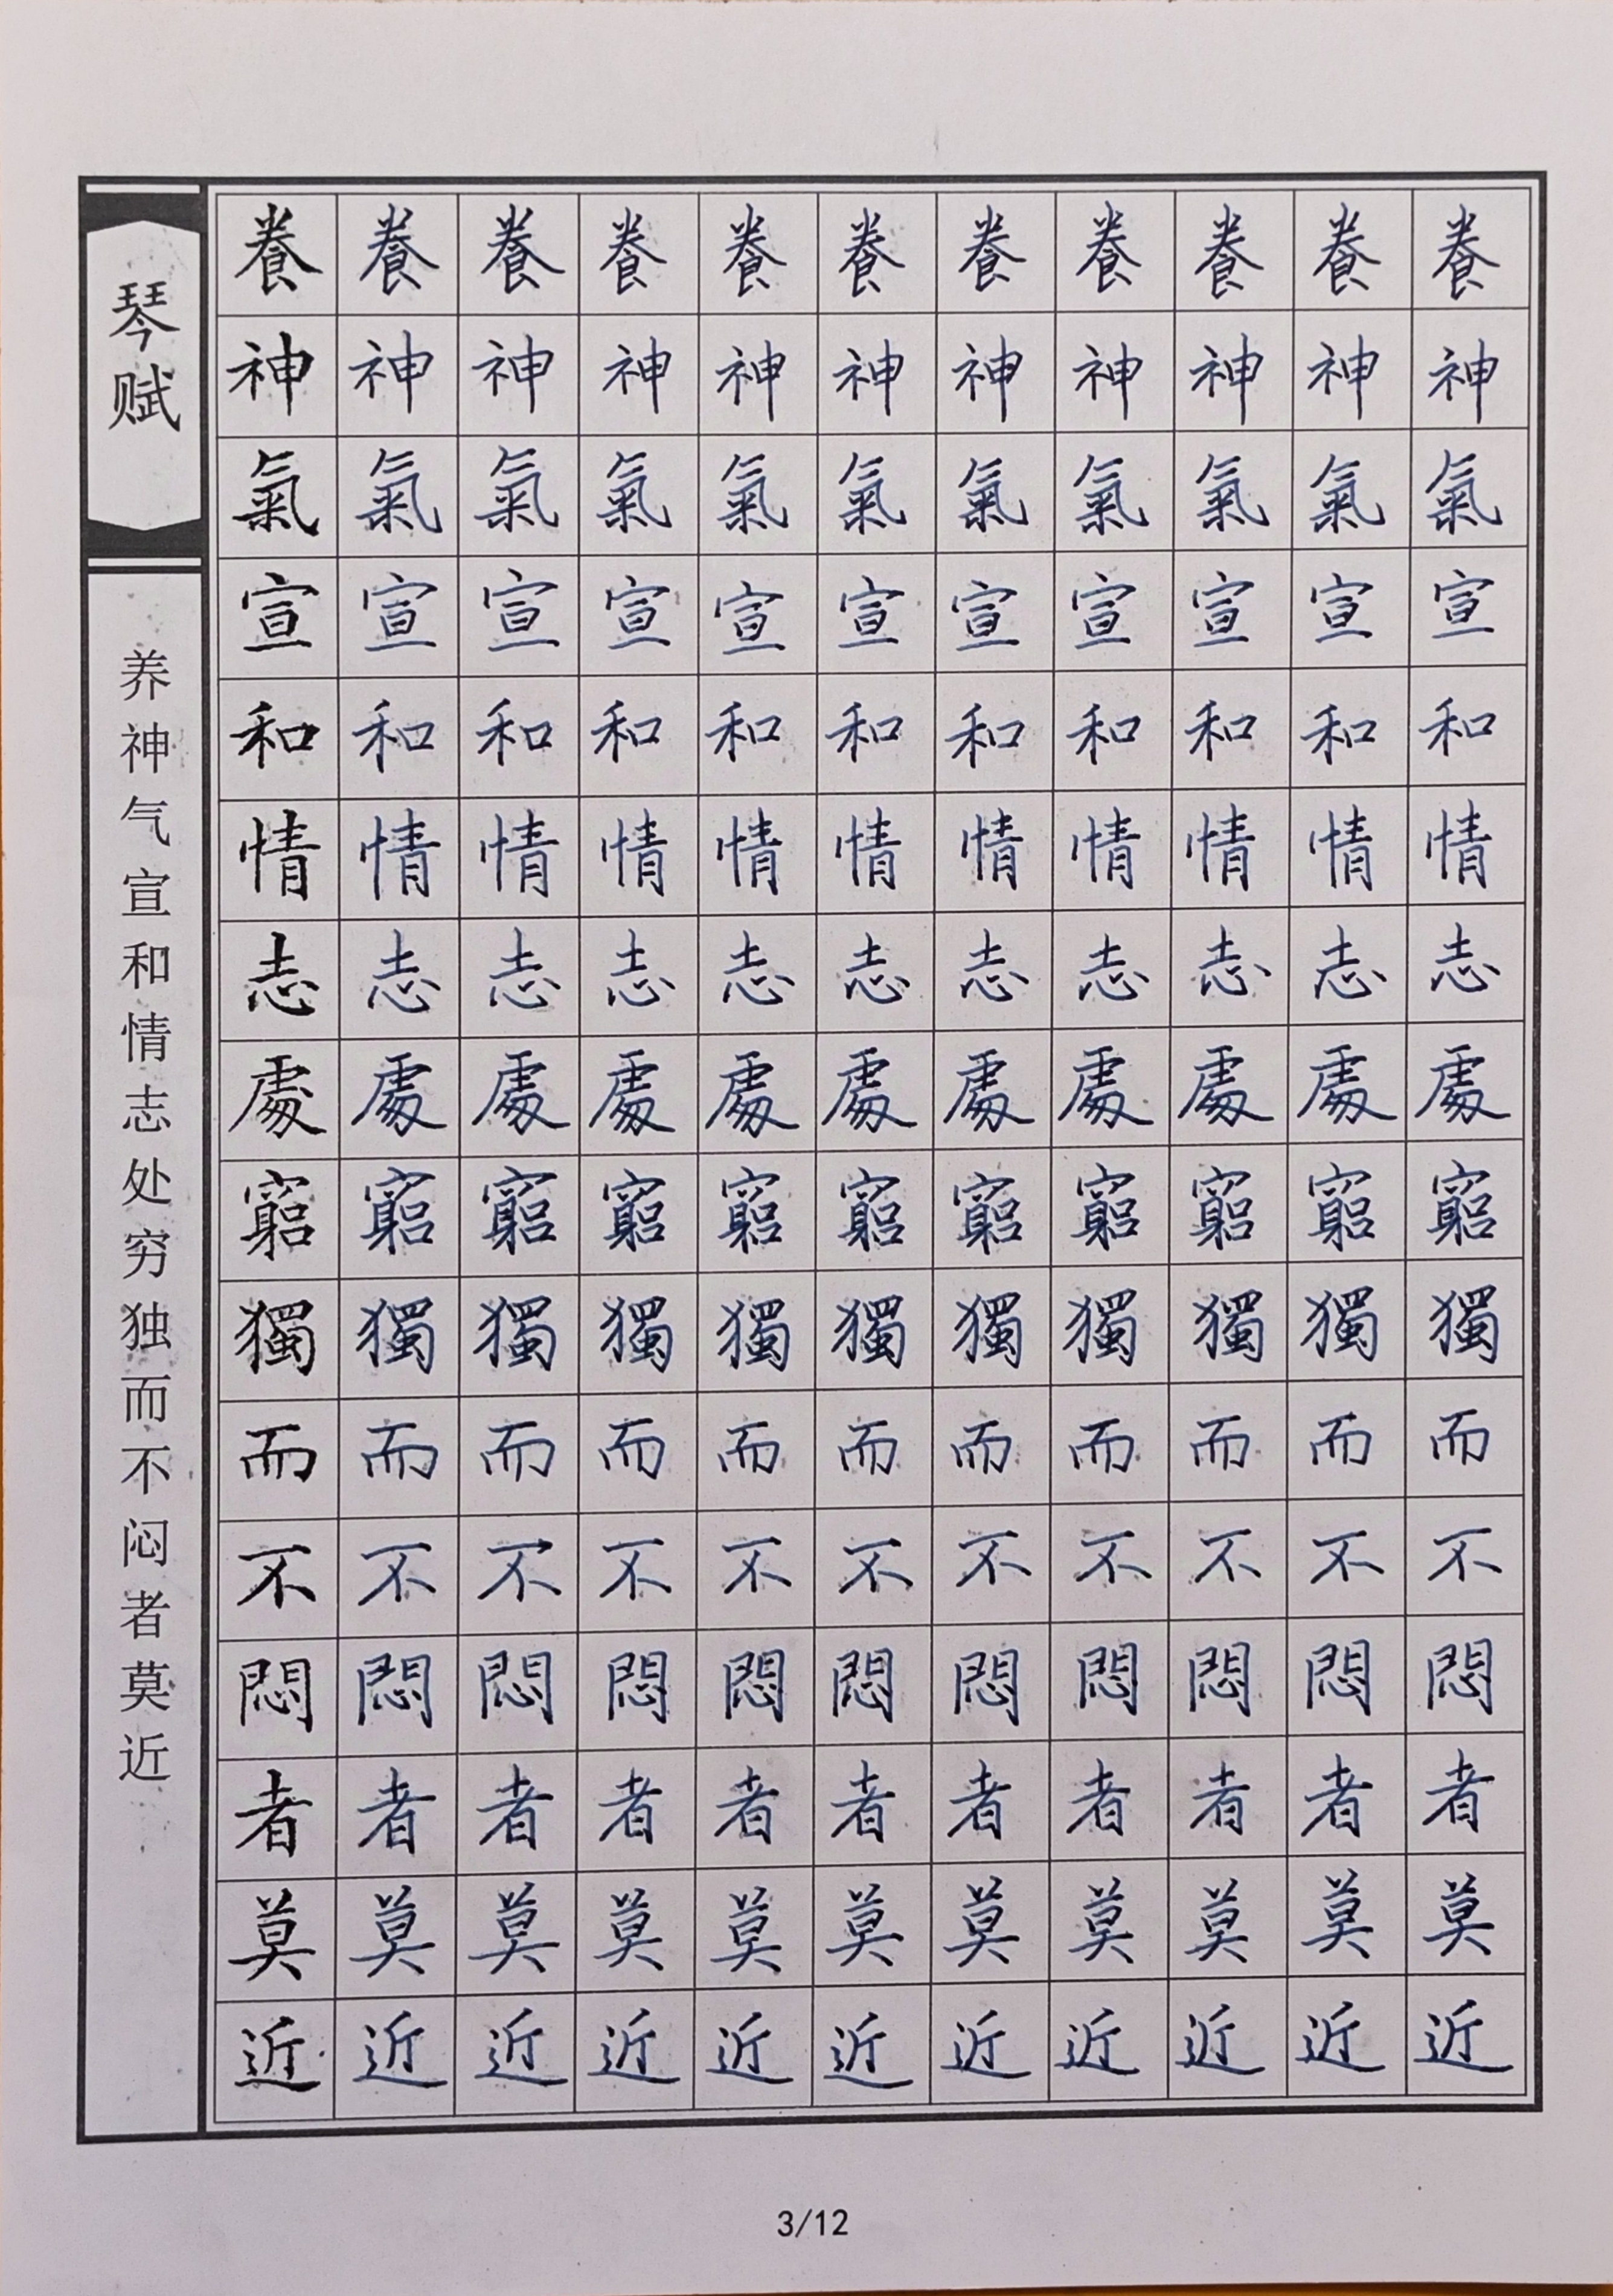 琴赋
养神气宣和情志处穷独而不闷者莫近
養養養養養養養養養養養
神神神神神神神神神神神
氣氣氣氣氣氣氣氣氣氣氣
宣宣宣宣宣宣宣宣宣宣宣
和和和和和和和和和和和
情情情情情情情情情情情
志志志志志志志志志志志
處處處處處處處處處處處
窮窮窮窮窮窮窮窮窮窮窮
獨獨獨獨獨獨獨獨獨獨獨
而而而而而而而而而而而
不不不不不不不不不不不
悶悶悶悶悶悶悶悶悶悶悶
者者者者者者者者者者者
莫莫莫莫莫莫莫莫莫莫莫
近近近近近近近近近近近
3/12